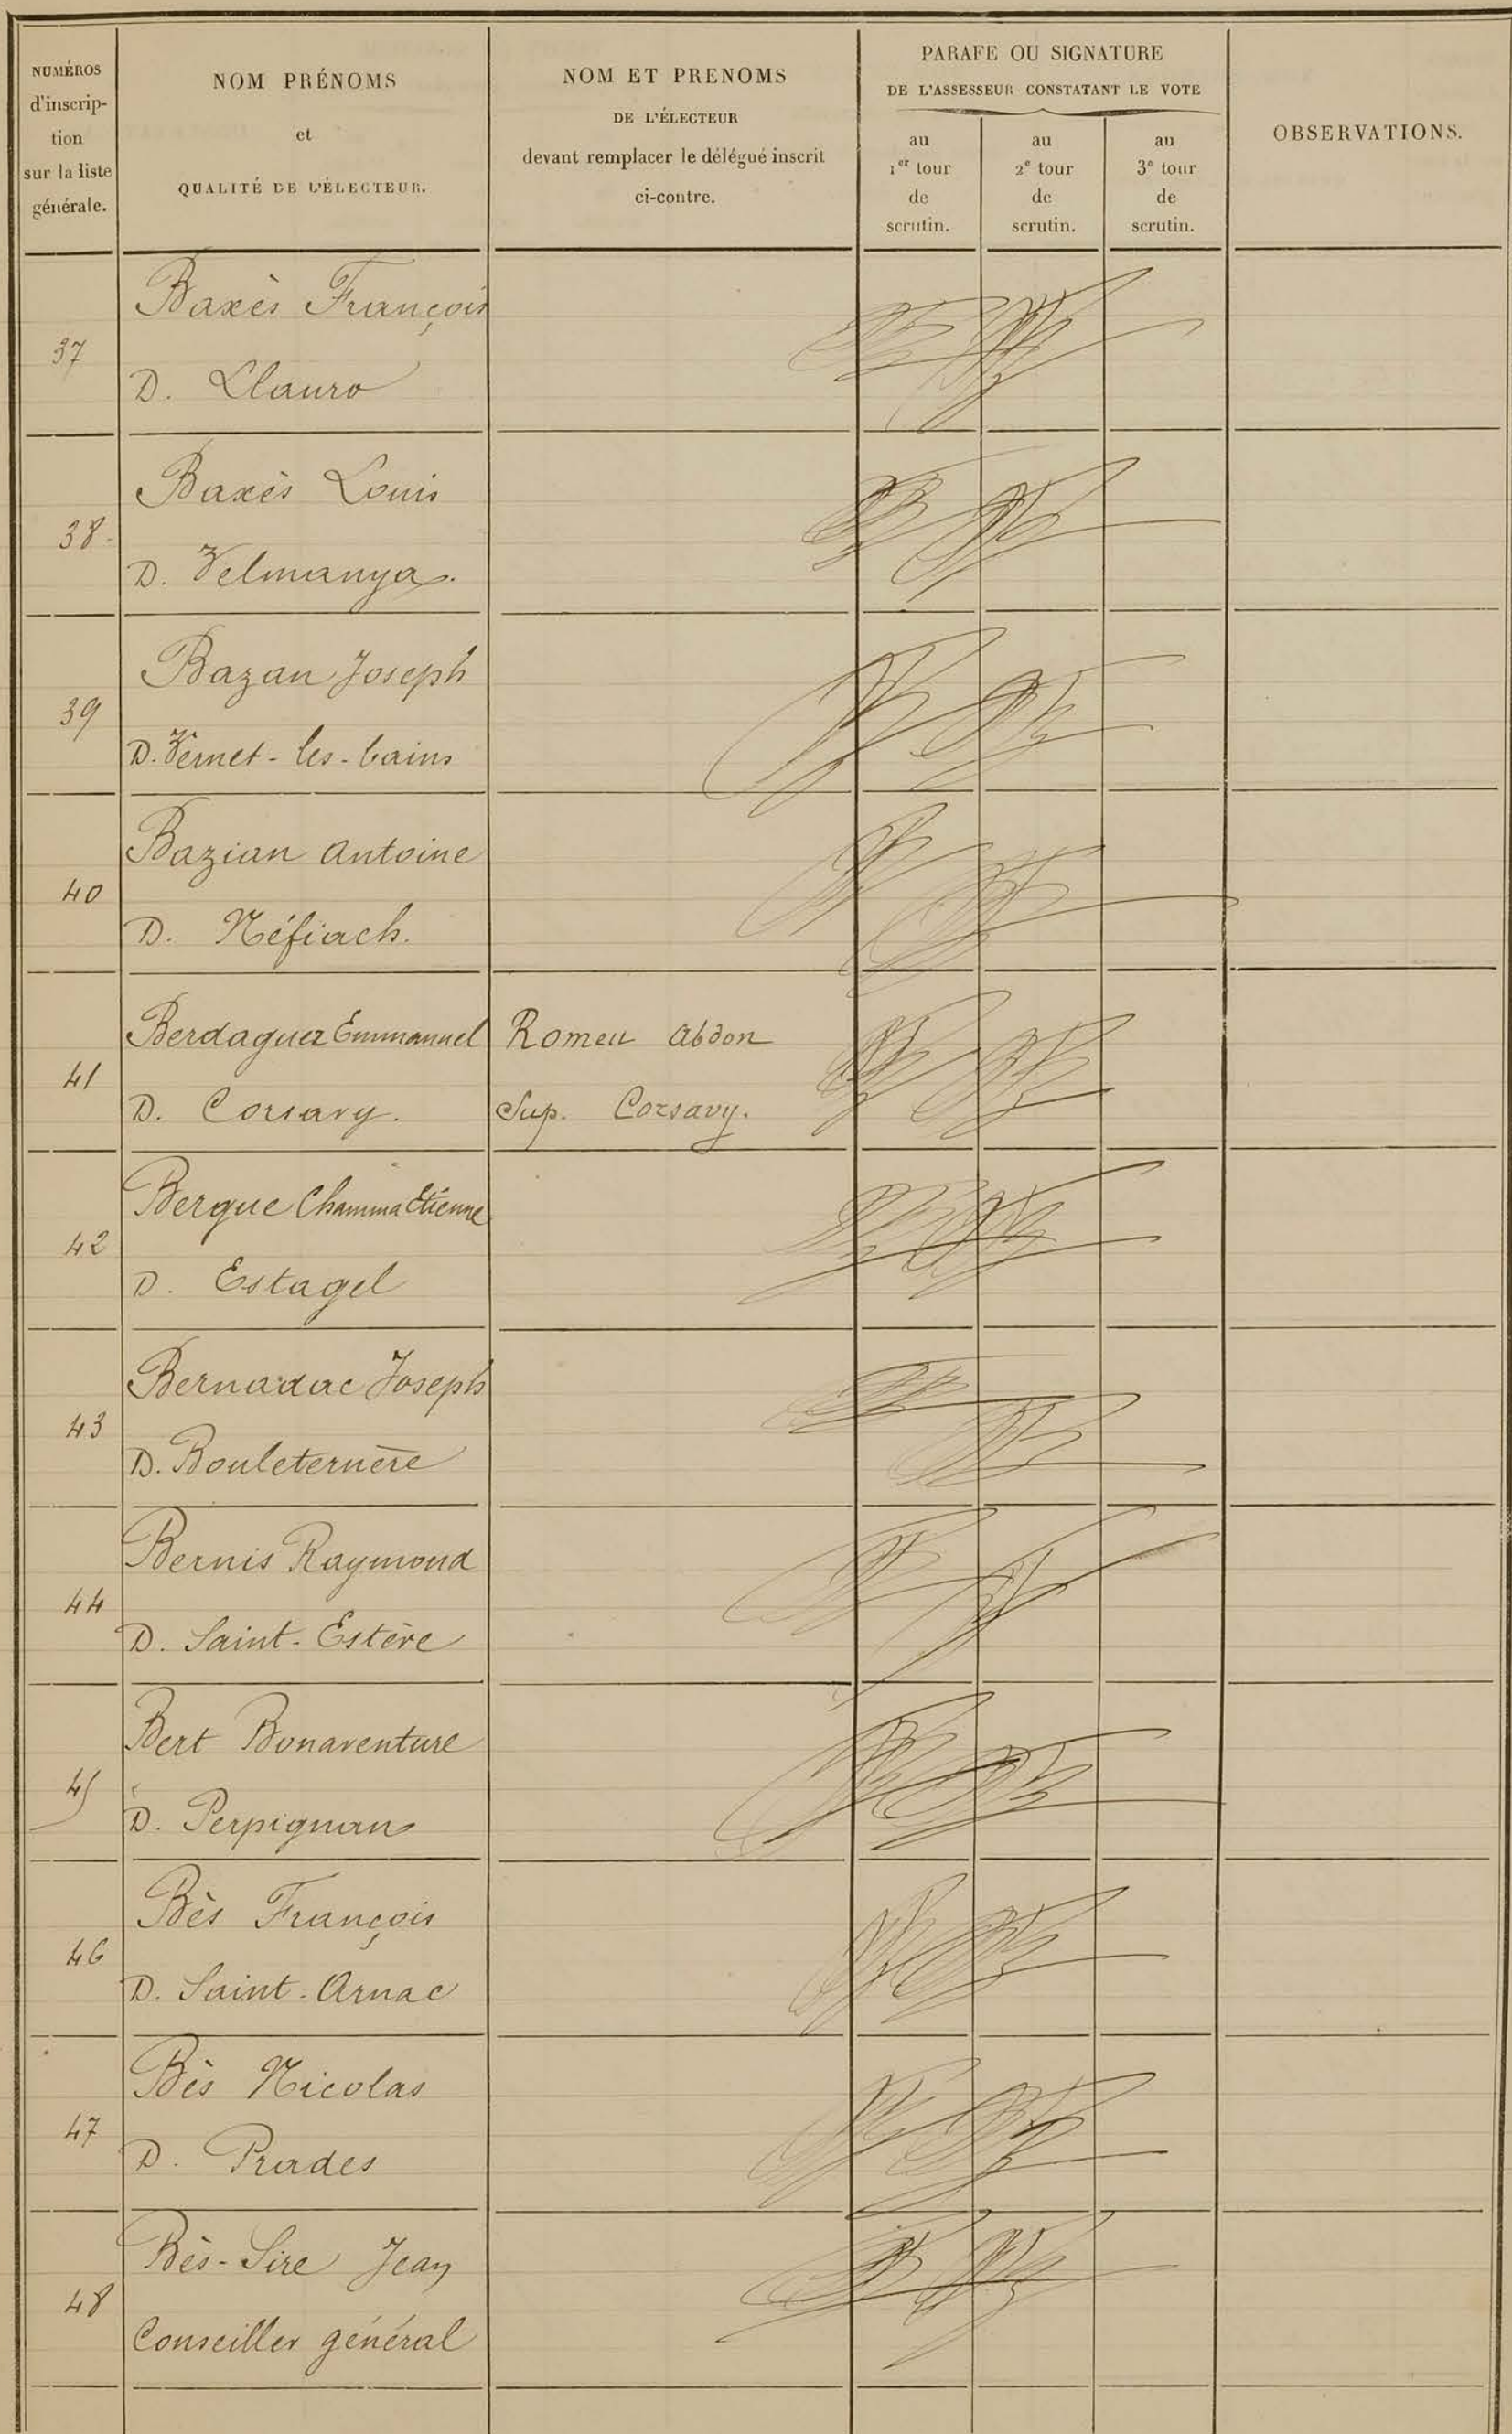 NUMÉROS
d'inscrip-
tion
sur la liste
générale.
NOM PRÉNOMS
et
QUALITÉ DE L'ÉLECTEUR.
NOM ET PRENOMS
DE L'ÉLECTEUR
devant remplacer le délégué inscrit
ci-contre.
PARAFE OU SIGNATURE
DE L'ASSESSEUR CONSTATANT LE VOTE
au
1er tour
de
scrutin.
au
2e tour
de
scrutin.
au
3e tour
de
scrutin.
OBSERVATIONS.
37
Baxès François
D. Llauro
38
Baxès Louis
D. Velmanya.
39
Bazan Joseph
D. Vernet-les-bains
40
Bazian Antoine
D. Néfiach.
41
Berdaguer Emmanuel
D. Corsavy.
Romeu Abdon
Sup. Corsavy.
42
Bergue Chamma Etienne
D. Estagel
43
Bernadac Joseph
D. Bouleternère
44
Bernis Raymond
D. Saint-Estève
45
Bert Bonaventure
D. Perpignan
46
Bès François
D. Saint-Arnac
47
Bès Nicolas
D. Prades
48
Bès-Sire Jean
Conseiller général